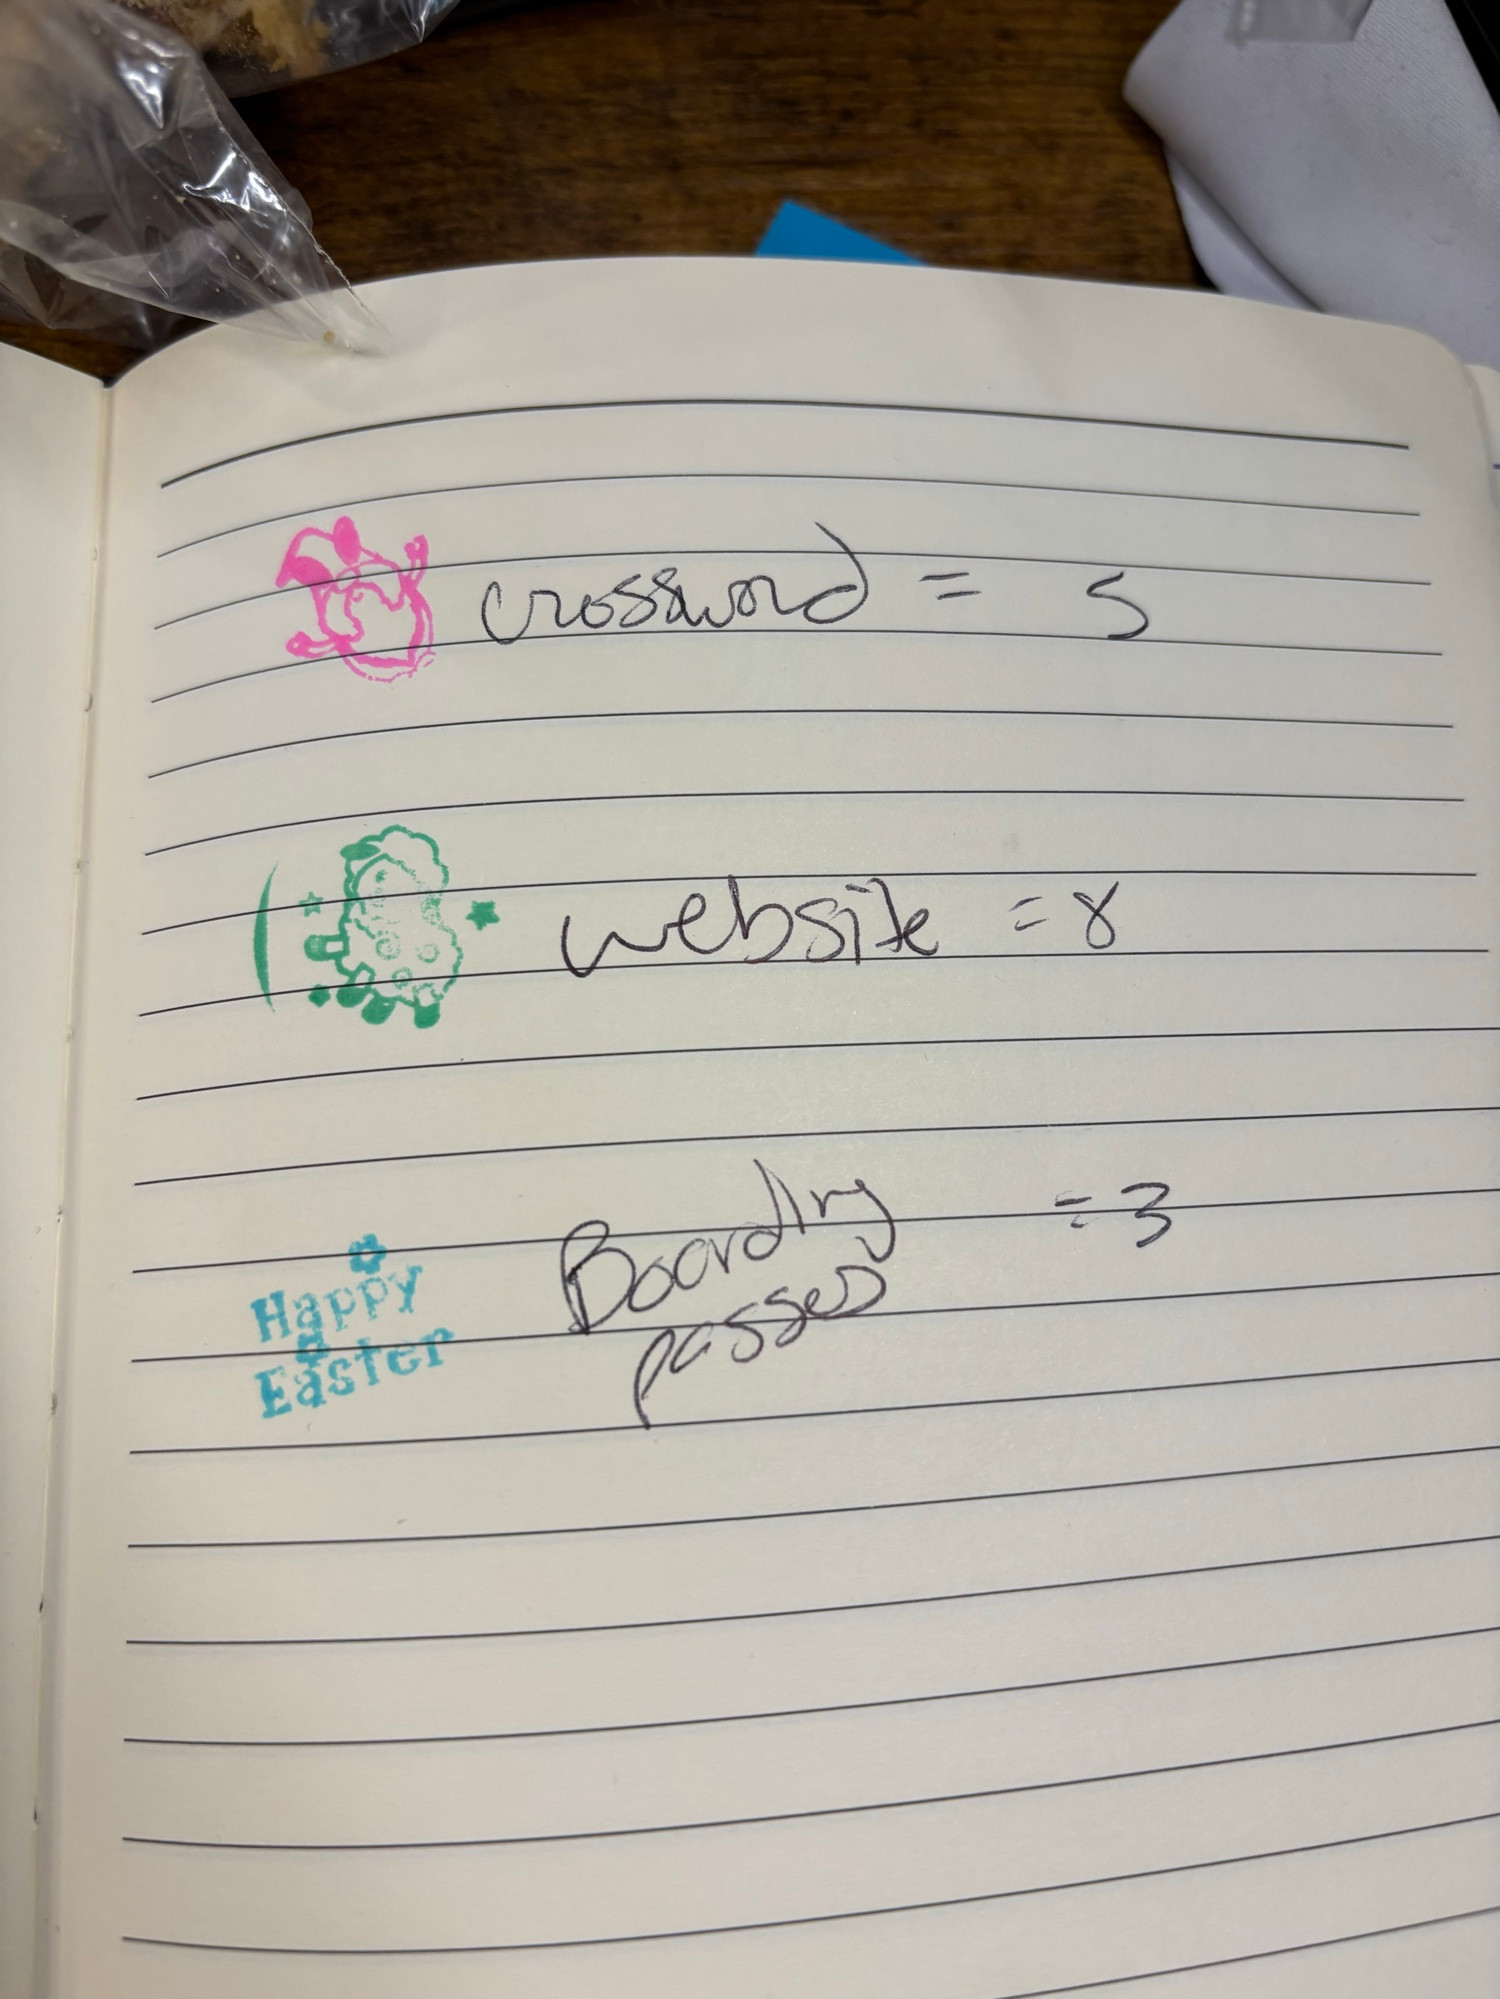 crossword = 5
website = 8
Boarding = 3
passes
Happy
Easter